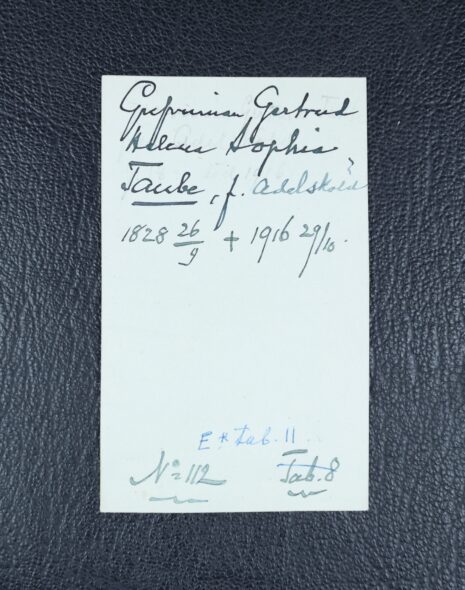 Grefvinnan, Gertrud
Helena Sophia
Taube, f. Adelsköld
1828 26/9 + 1916 29/10.
E * tab. 11
No = 112 Tab. 8